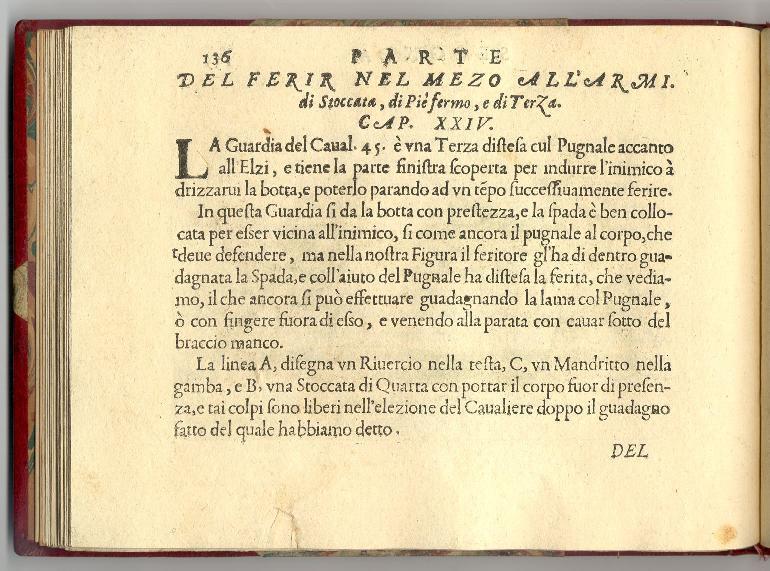 136 PARTE
DEL FERIR NEL MEZO ALL'ARMI.
di Stoccata, di Piè fermo, e di Terza.
CAP. XXIV.
LA Guardia del Caual. 45. è vna Terza distesa cul Pugnale accanto
all'Elzi, e tiene la parte sinistra scoperta per indurre l'inimico à
drizzarui la botta, e poterlo parando ad vn tẽpo successiuamente ferire.
In questa Guardia si da la botta con prestezza, e la spada è ben collo-
cata per esser vicina all'inimico, sì come ancora il pugnale al corpo, che
deue defendere, ma nella nostra Figura il feritore gl'ha di dentro gua-
dagnata la Spada, e coll'aiuto del Pugnale ha distesa la ferita, che vedia-
mo, il che ancora si può effettuare guadagnando la lama col Pugnale,
ò con fingere fuora di esso, e venendo alla parata con cauar sotto del
braccio manco.
La linea A, disegna vn Riuercio nella testa, C, vn Mandritto nella
gamba, e B, vna Stoccata di Quarta con portar il corpo fuor di presen-
za, e tai colpi sono liberi nell'elezione del Caualiere doppo il guadagno
fatto del quale habbiamo detto.
DEL